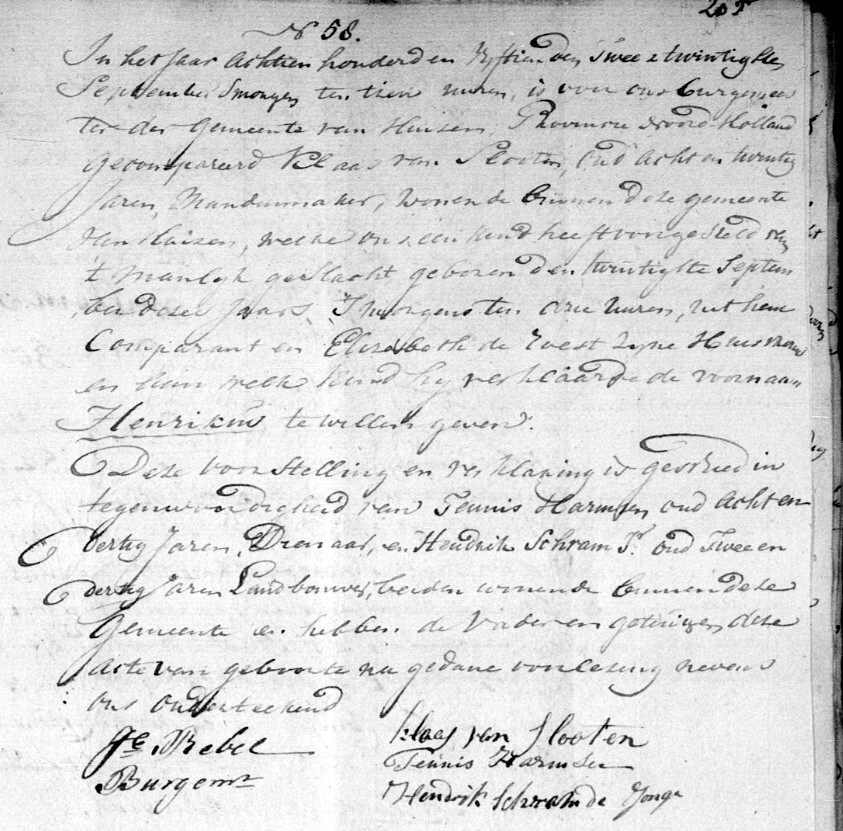 N 58.
In het Jaar Achtien honderd en Vyftien den Twee & twintigste
September Smorgens ten tien uuren, is voor ons burgemees
ter der Gemeente van Huisen, Provincie Noord Holland
Gecompareerd Klaas van Slooten, oud Acht en twintig
Jaren, Mandenmaker, wonende binnen deze gemeente
van Huizen, welke ons een kind heeft voorgesteld van
't manlyk geslacht geboren den twintigste Septem
ber dezer Jaars, Smorgens ten drie uuren, uit hem
Comparant en Elizabeth de Zwart zyne Huisvrouw
en aan welk kind hy verklaarde de voornaam
Henrikus te willen geven.
Deze voorstelling en verklaring is geschied in
tegenwoordigheid van Teunis Harmsen oud Acht en
dertig Jaren, Dienaar, en Hendrik Schram Jr. oud Twee en
dertig Jaren Landbouwer, beiden wonende binnen deze
Gemeente en hebben de Vader en getuigen deze
acte van geboorte na gedane voorlezing nevens
ons onderteekend
Rebel
Burgemr
Klaas van Slooten
Teunis Harmsen
Hendrik Schram de Jonge